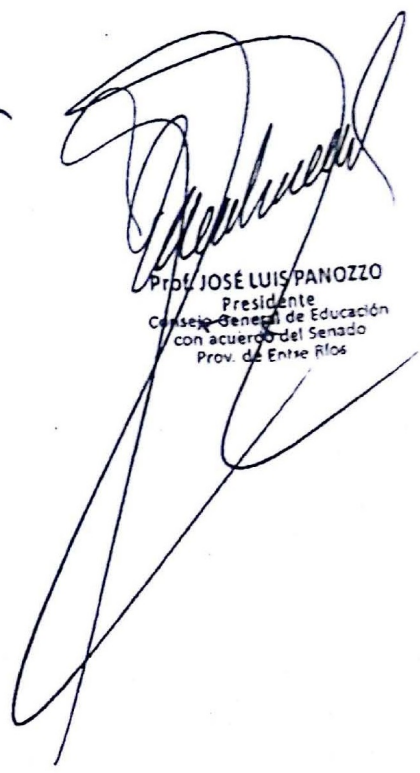 Prof. JOSÉ LUIS PANOZZO
Presidente
Consejo General de Educación
con acuerdo del Senado
Prov. de Entre Ríos